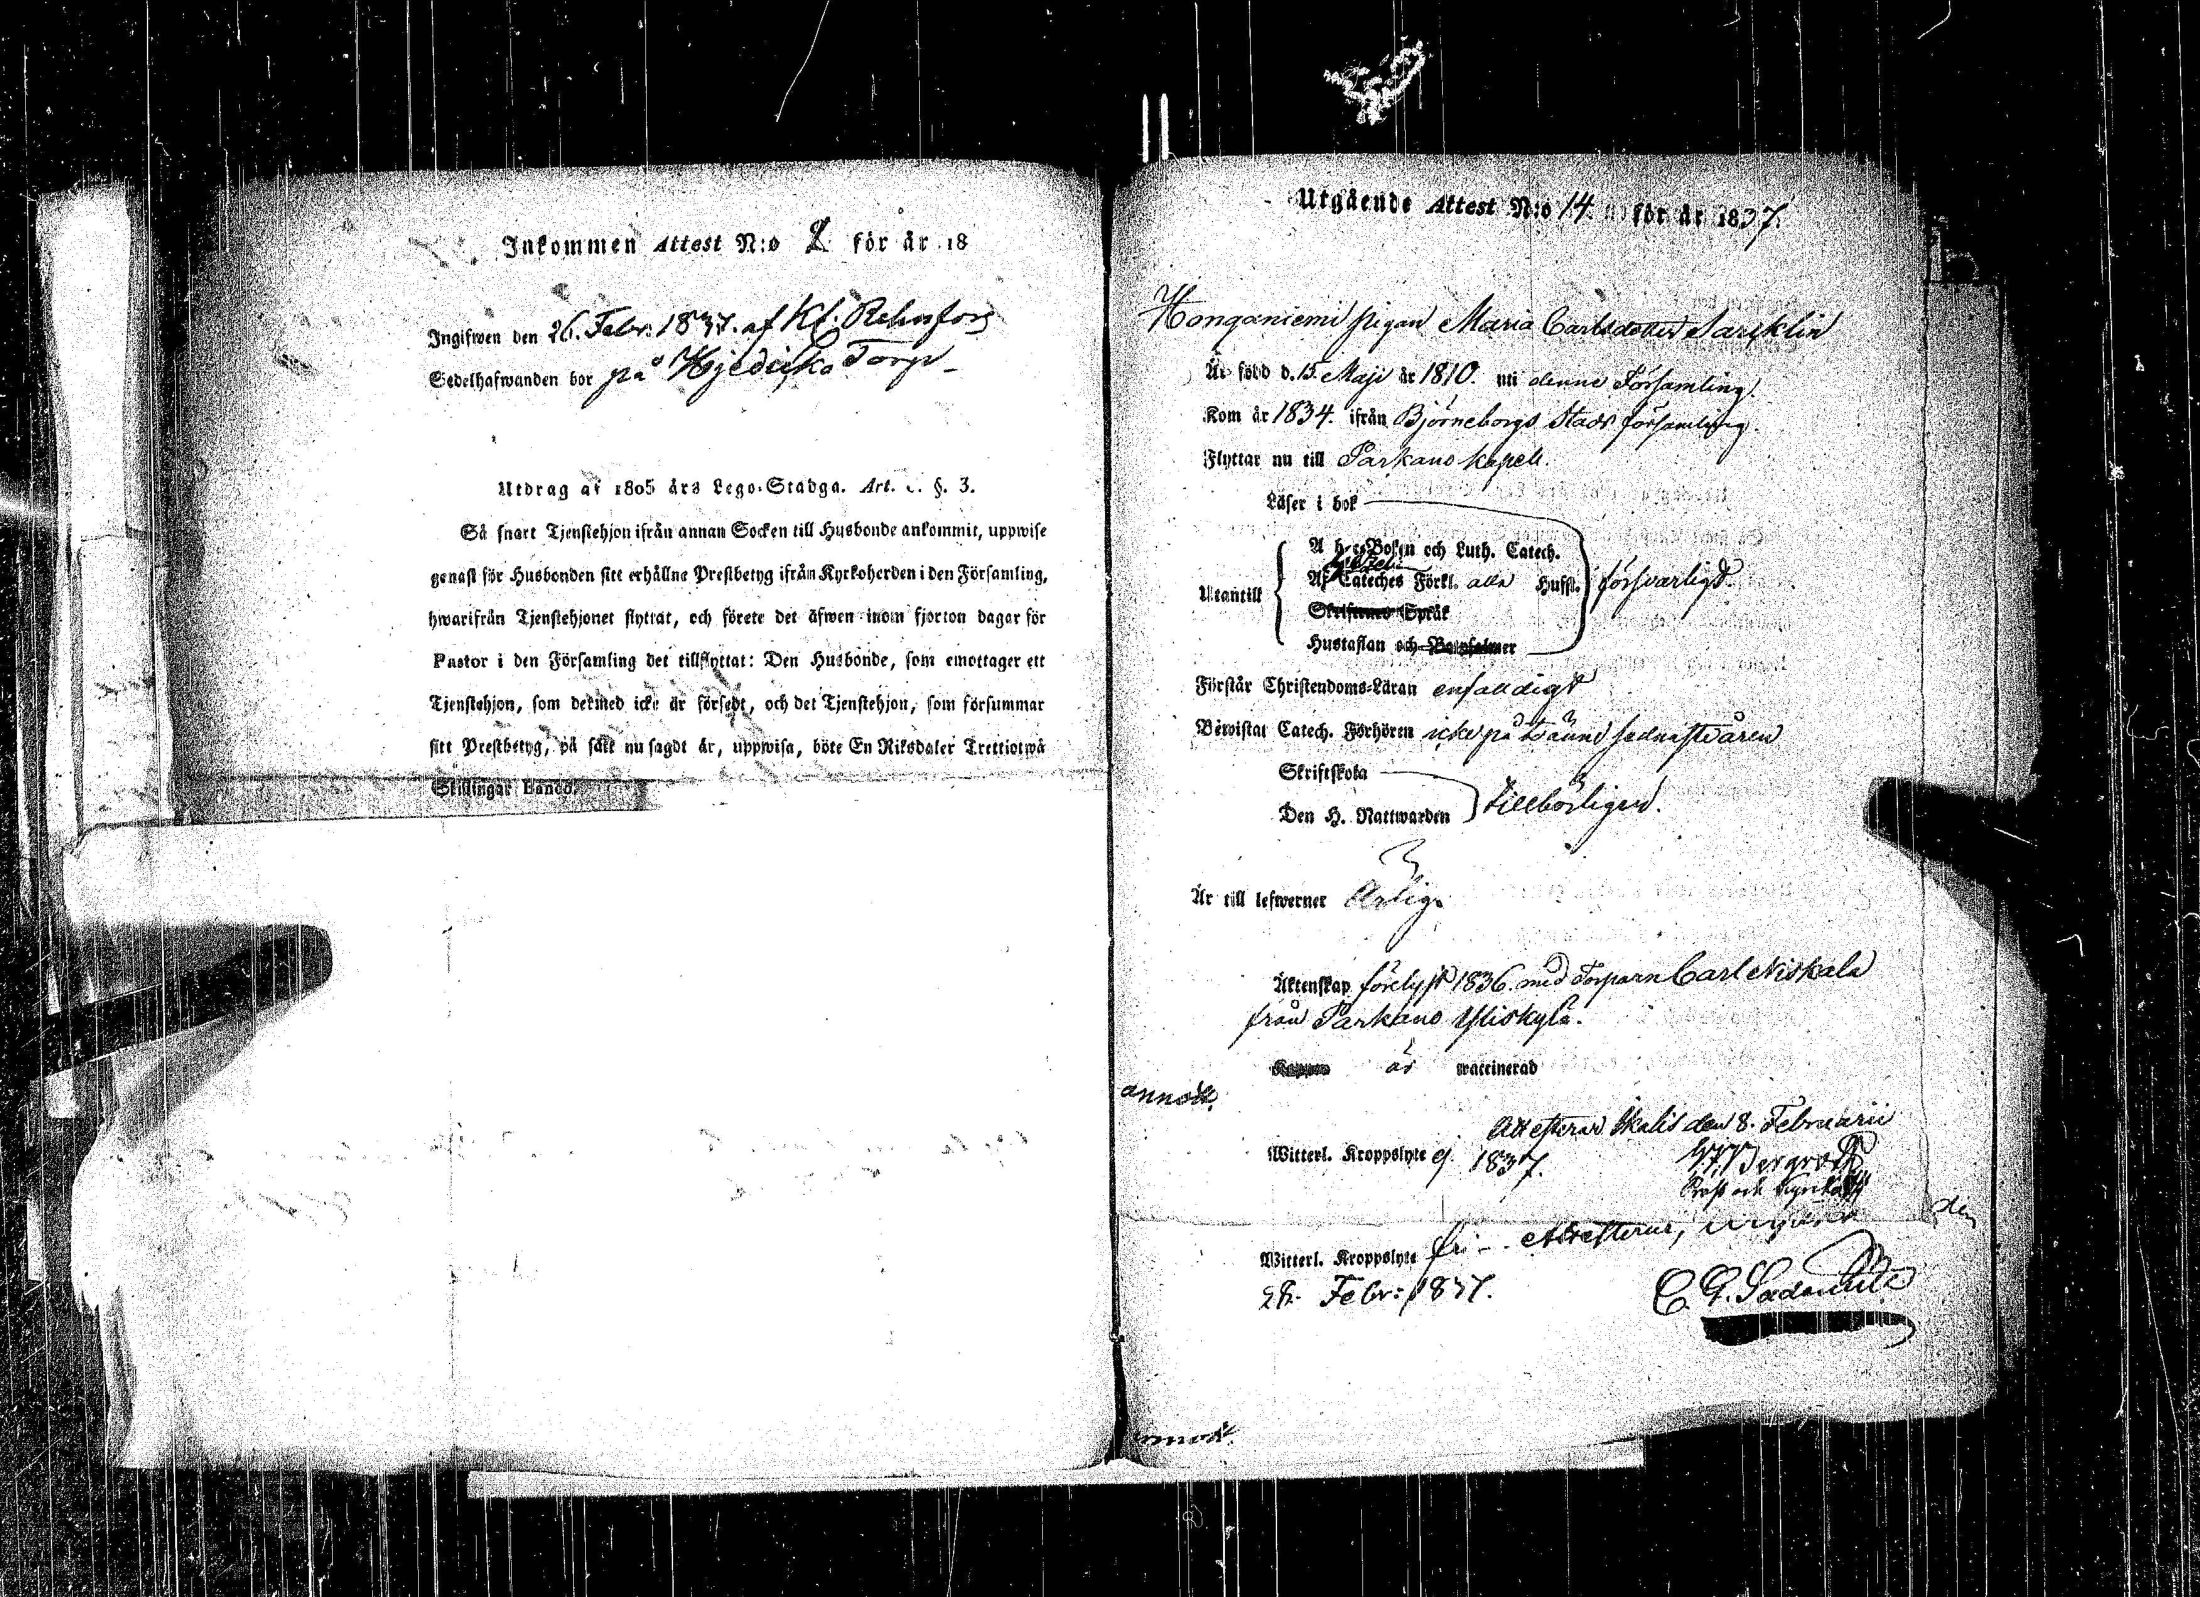 Inkommen Attest N:o 2. för år 18
Ingifwen den 26. Febr: 1837. af Kl: Rehnfors
Sedelhafwanden bor på Torp
Utdrag af 1805 års Lego-Stadga. Art. §. 3.
Så snart Tjenstehjon ifrån annan Socken till Husbonde ankommit, uppwise
genast för Husbonden sitt erhållne Prestbetyg ifrån Kyrkoherden i den Församling,
hwarifrån Tjenstehjonet flyttat, och förete det äfwen inom fjorton dagar för
Pastor i den Församling det tillflyttat: Den Husbonde, som emottager ett
Tjenstehjon, som dermed icke är försedt, och det Tjenstehjon, som försummar
sitt Prestbetyg, på sätt nu sagdt är, uppwisa, böte En Riksdaler Trettiotwå
Skillingar Banco.
Utgående Attest N:o 14. för år 1837.
Honganiemi pigan Maria Carlsdotter
Är född d. 15. Maji år 1810. uti denne Församling.
Kom år 1834. ifrån Björneborgs Stads församling.
Flyttar nu till Parkano kapell.
Läser i bok
A b c Boken och Luth. Catech.
Utantill
Af Cateches Förkl. alla Hufst. försvarligt.
Skriftenes Språk
Hustaflan och Botpsalmer
Förstår Christendoms-Läran enfalldigt
Bewistat Catech. Förhören icke på tvänne sednaste åren
Skriftskola
Den H. Nattwarden tillbörligen.
Är till lefwernet Ärlig.
Äktenskap förelyst 1836. med Torparn Carl Niskala
från Parkano Yliskylä.
Koppor är waccinerad
annot.
Attesterar Ikalis den 8. Februarii
Witterl. Kroppslyte ej. 1837.
Bergroth
Prost och Kyrkoh
Witterl. Kroppslyte fri - Attesterar,
Febr: 1837.
C. G.
annot.